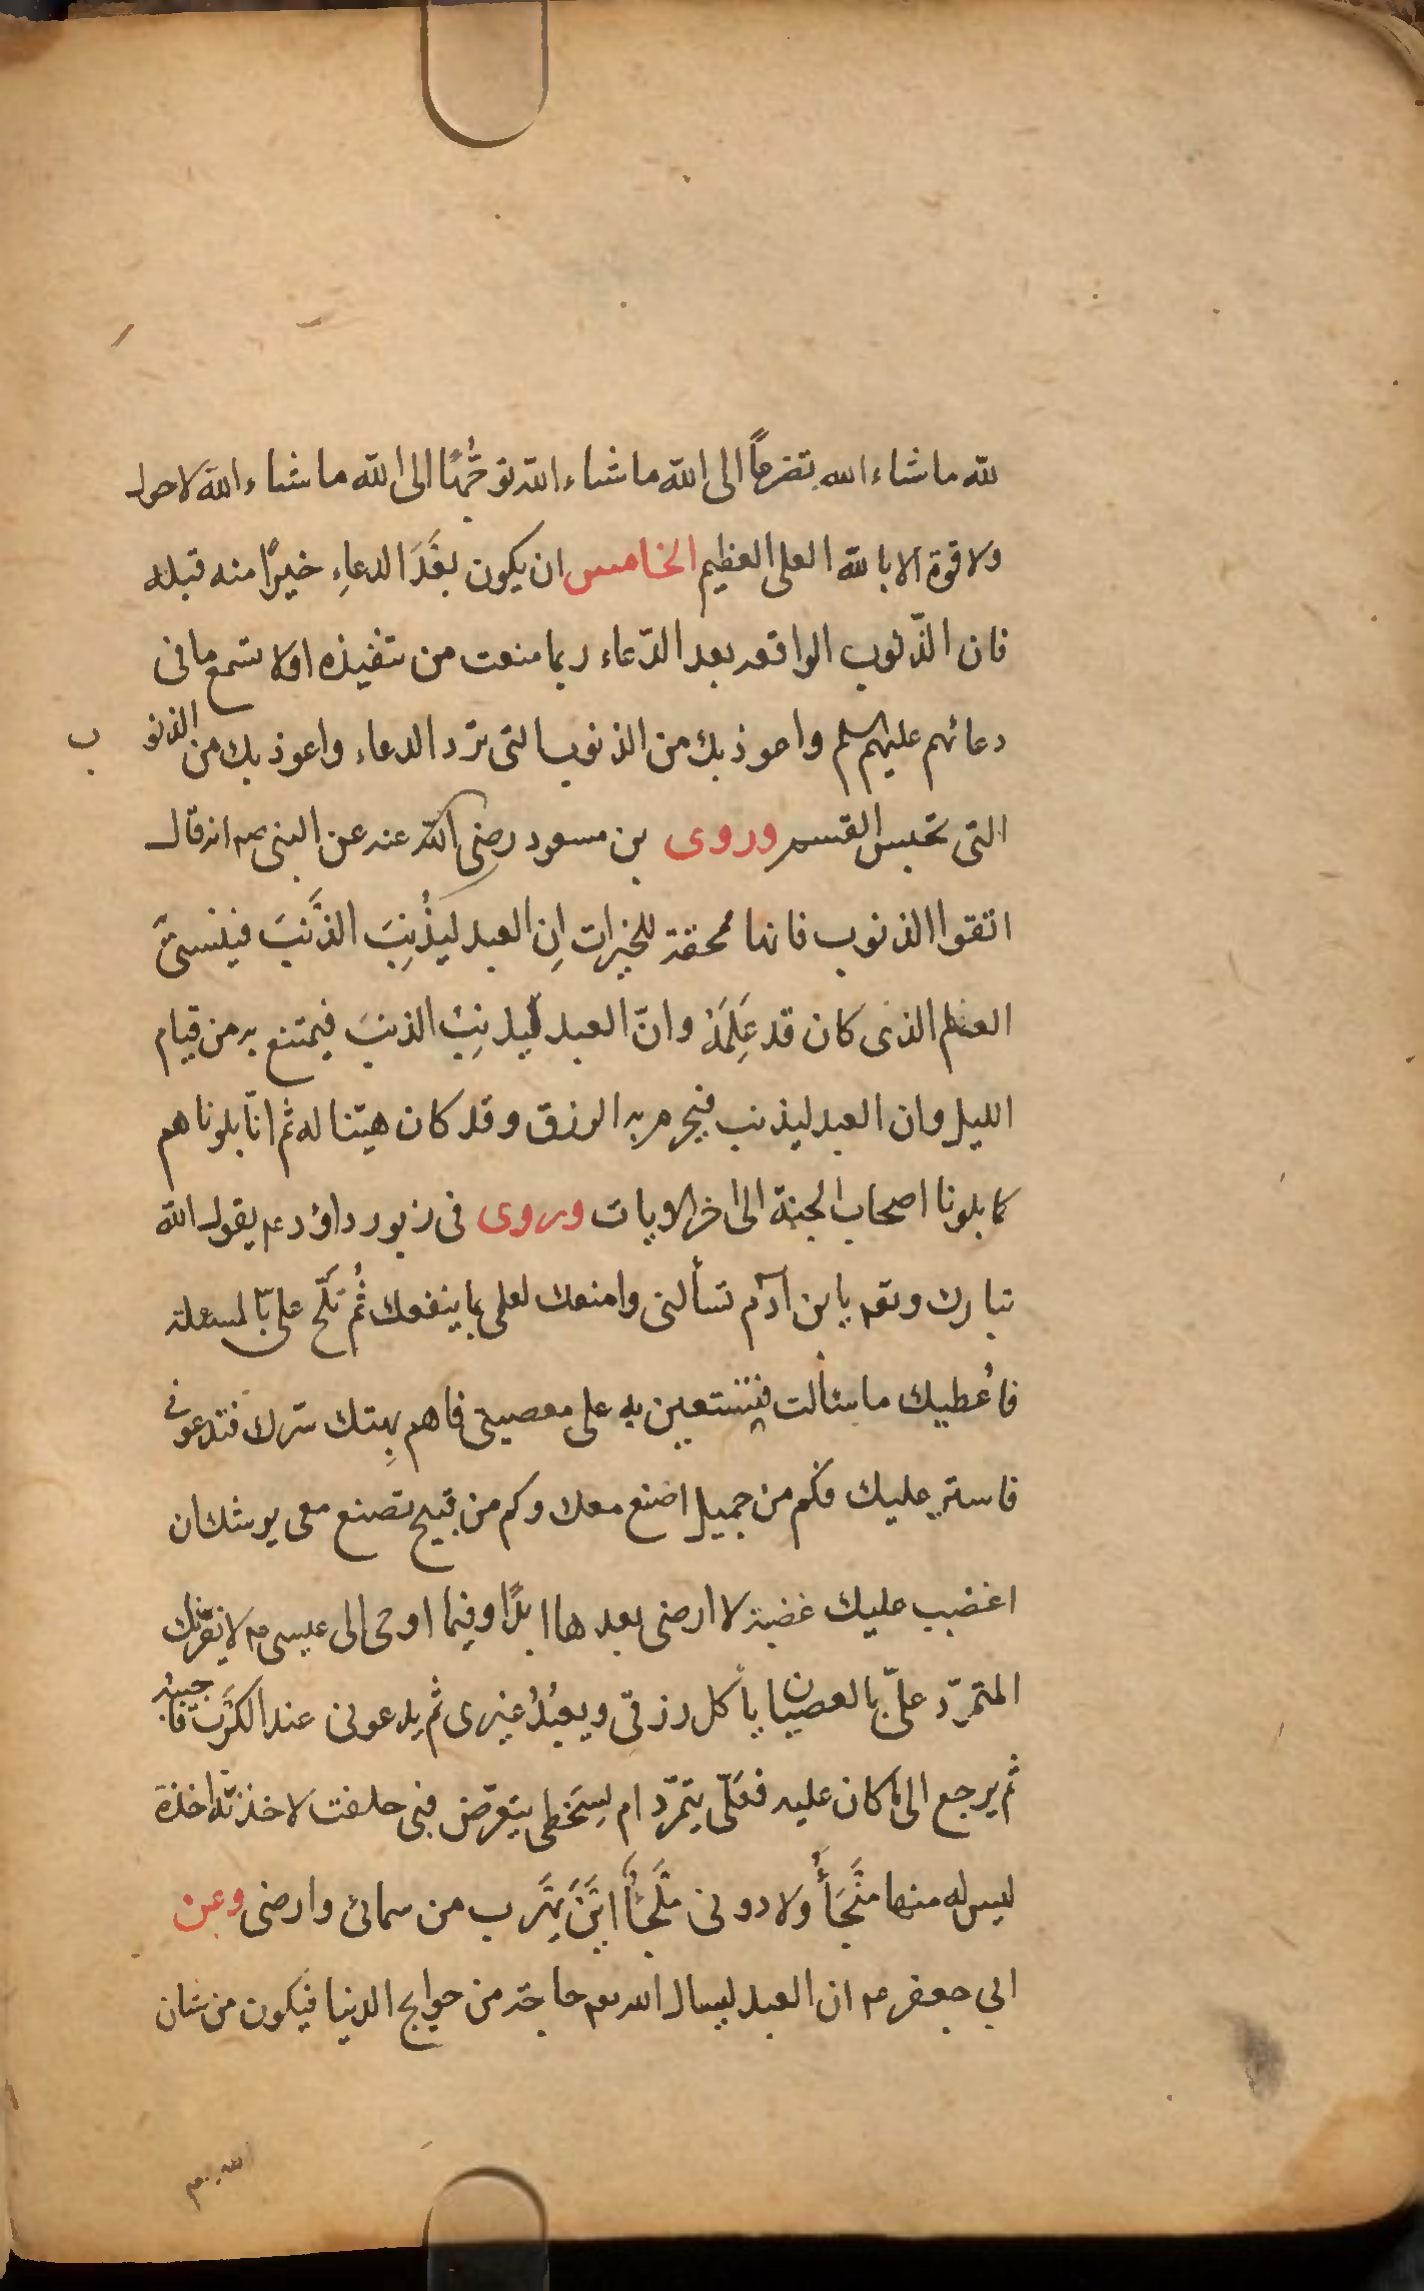 لله ماشاء الله تضرعاً الى الله ماشاء الله توجُّهًا الى الله ماشاء الله لا حول
ولا قوة الا بالله العلى العظيم الخامس ان يكون بعَدَ الدعاءِ خيرًا منه قبله
فان الذّنوب الواقعه بعد الدّعاء ربما منعت من تنفيذه اولا تسمع ما فى
دعائهم عليهم السلم واعوذ بك من الذنوب التى ترد الدعاء واعوذ بك من الذنو ب
التى تحبس القسم وروى بن مسعود رضى الله عنه عن النبى صم انه قال
اتقوا الذنوب فانها ممحقة للخيرات اِن العبد ليُذْنِبَ الذَّنبَ فينسىَّ
العلم الذى كان قد عَلِمَهُ وانّ العبد ليذنِبْ الذنبَ فيمتنع به من قيام
الليل وان العبد ليذنب فيحرم به الرزق وقد كان هيّنا له ثم انّا بلوناهم
كما بلونا اصحاب الجنة الى اخر الايات وروى فى زبور داؤد عم يقول الله
تبارك وتعم يا بن آدم تسألنى وامنعك لعلمى بما ينفعك ثُم تلّح علىّ بالمسئلة
فاُعطيك ما سئالت فتستعين به على معصيتى فاهم بِهتك سترك فتدعونى
فاستر عليك فكم من جميل اصنع معك وكم من قبيح تصنع معى يوشك ان
اغضب عليك غضبة لا ارضى بعدها ابدًا وفيما اوحى الى عيسى عم لا يغرّنك
المتمرّد علىّ بالعصيان ياكل رزقى ويعبُدُ غيرى ثم يدعونى عند الكَرْب فاجيبهُ
ثم يرجع الى ما كان عليه فعَلَىّ يتمرّد ام لسَخطى يتعرّض فبى حلفت لاخذنّه اخذة
ليس له منها مَنْجَأُ وَلا دونى مَلْجَأُ اَيْنَ يَهْرب من سمائى وارضى وعن
ابى جعفر عم ان العبد ليسال الله تعم حاجة من حوايج الدنيا فيكون من شان